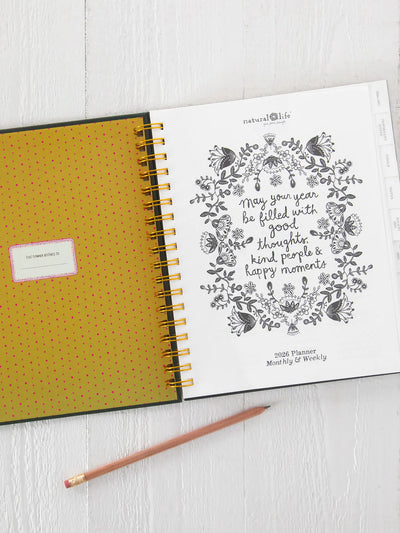 THIS PLANNER BELONGS TO:
natural life
May your year
be filled with
good
thoughts,
kind people &
happy moments
2026 Planner
Monthly & Weekly